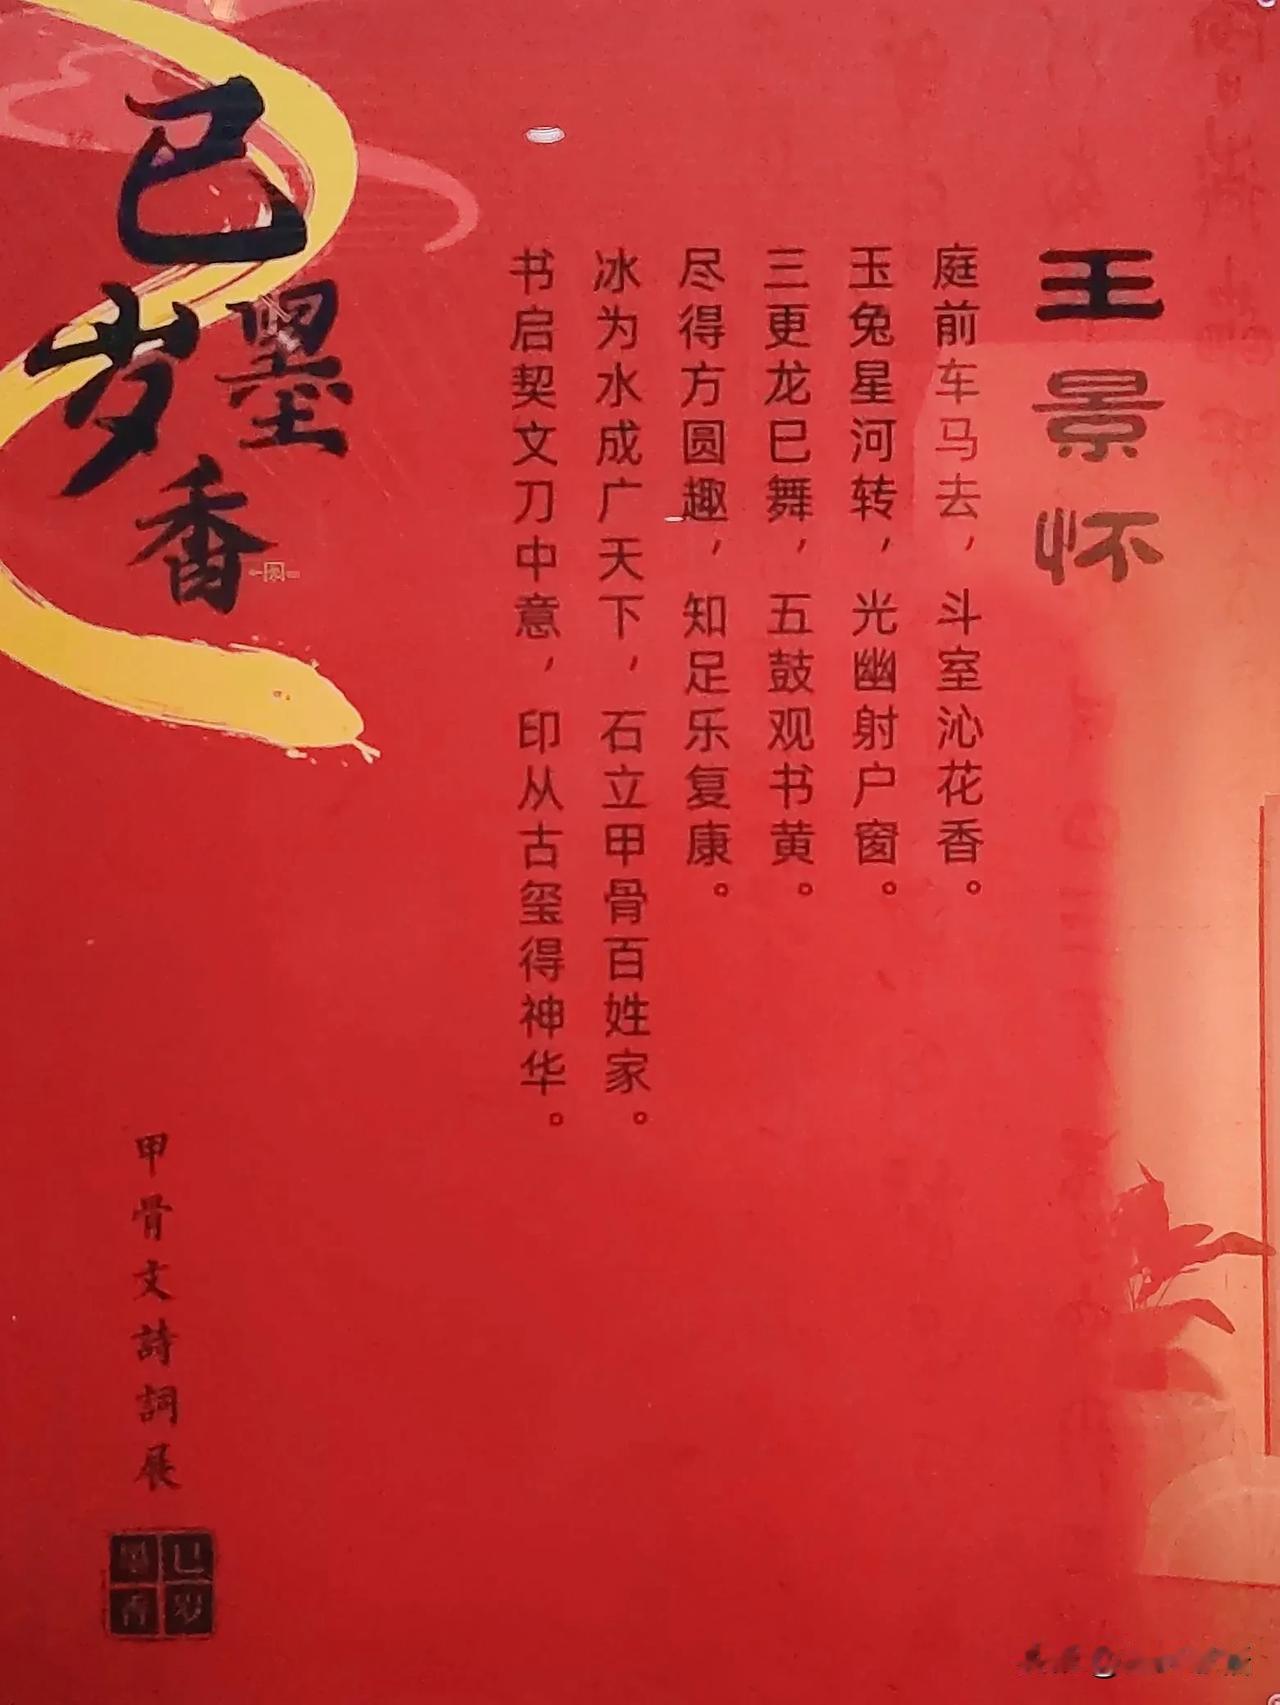 王景怀
庭前车马去，斗室沁花香。
玉兔星河转，光幽射户窗。
三更龙巳舞，五鼓观书黄。
尽得方圆趣，知足乐复康。
冰为水成广天下，石立甲骨百姓家。
书启契文刀中意，印从古玺得神华。
巳岁墨香
甲骨文詩詞展
巳岁墨香